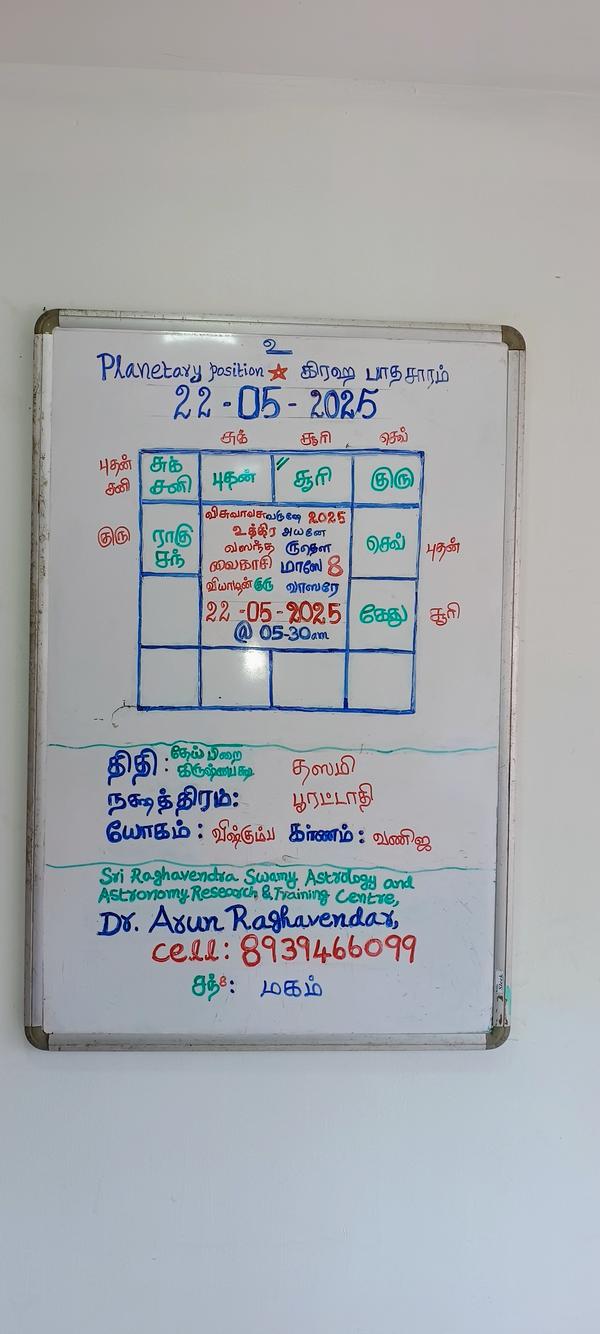 உ
Planetary position ☆ கிரஹ பாதசாரம்
22-05-2025
சுக் சூரி செவ்
புதன் சனி சுக் சனி புதன் சூரி குரு
குரு ராகு சந் செவ் புதன்
விசுவாவசுவருஷே 2025
உத்திர அயனே
வஸந்த ருதௌ
வைகாசி மாஸே 8
வியாழன் குரு வாஸரே
22-05-2025 கேது சூரி
@ 05-30am
திதி: தேய்பிறை கிருஷ்ணபக்ஷ தஸமி
நக்ஷத்திரம்: பூரட்டாதி
யோகம்: விஷ்கும்ப கர்ணம்: வணிஜ
Sri Raghavendra Swamy Astrology and
Astronomy Research & Training Centre,
Dr. Arun Raghavendar,
cell: 8939466099
சந்8: மகம்